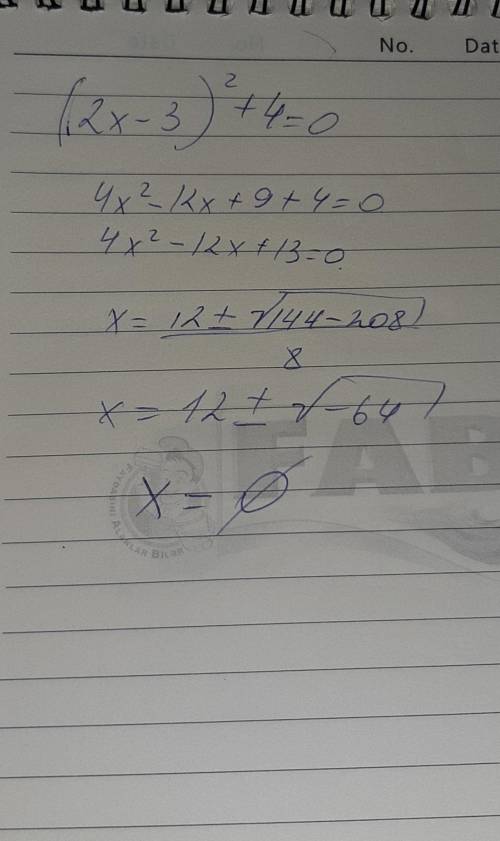 No. Dat
(2x-3)² + 4 = 0
4x² - 12x + 9 + 4 = 0
4x² - 12x + 13 = 0.
x = 12 ± √(144-208)
8
x = 12 ± √(-64)
FAB
x = ∅
FAYDASINI ALSINLAR BILGI